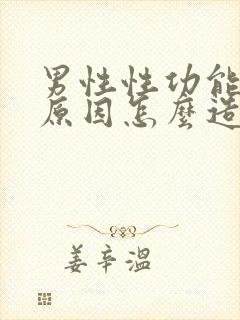 男性性功能
原因怎麼造
姜辛溫